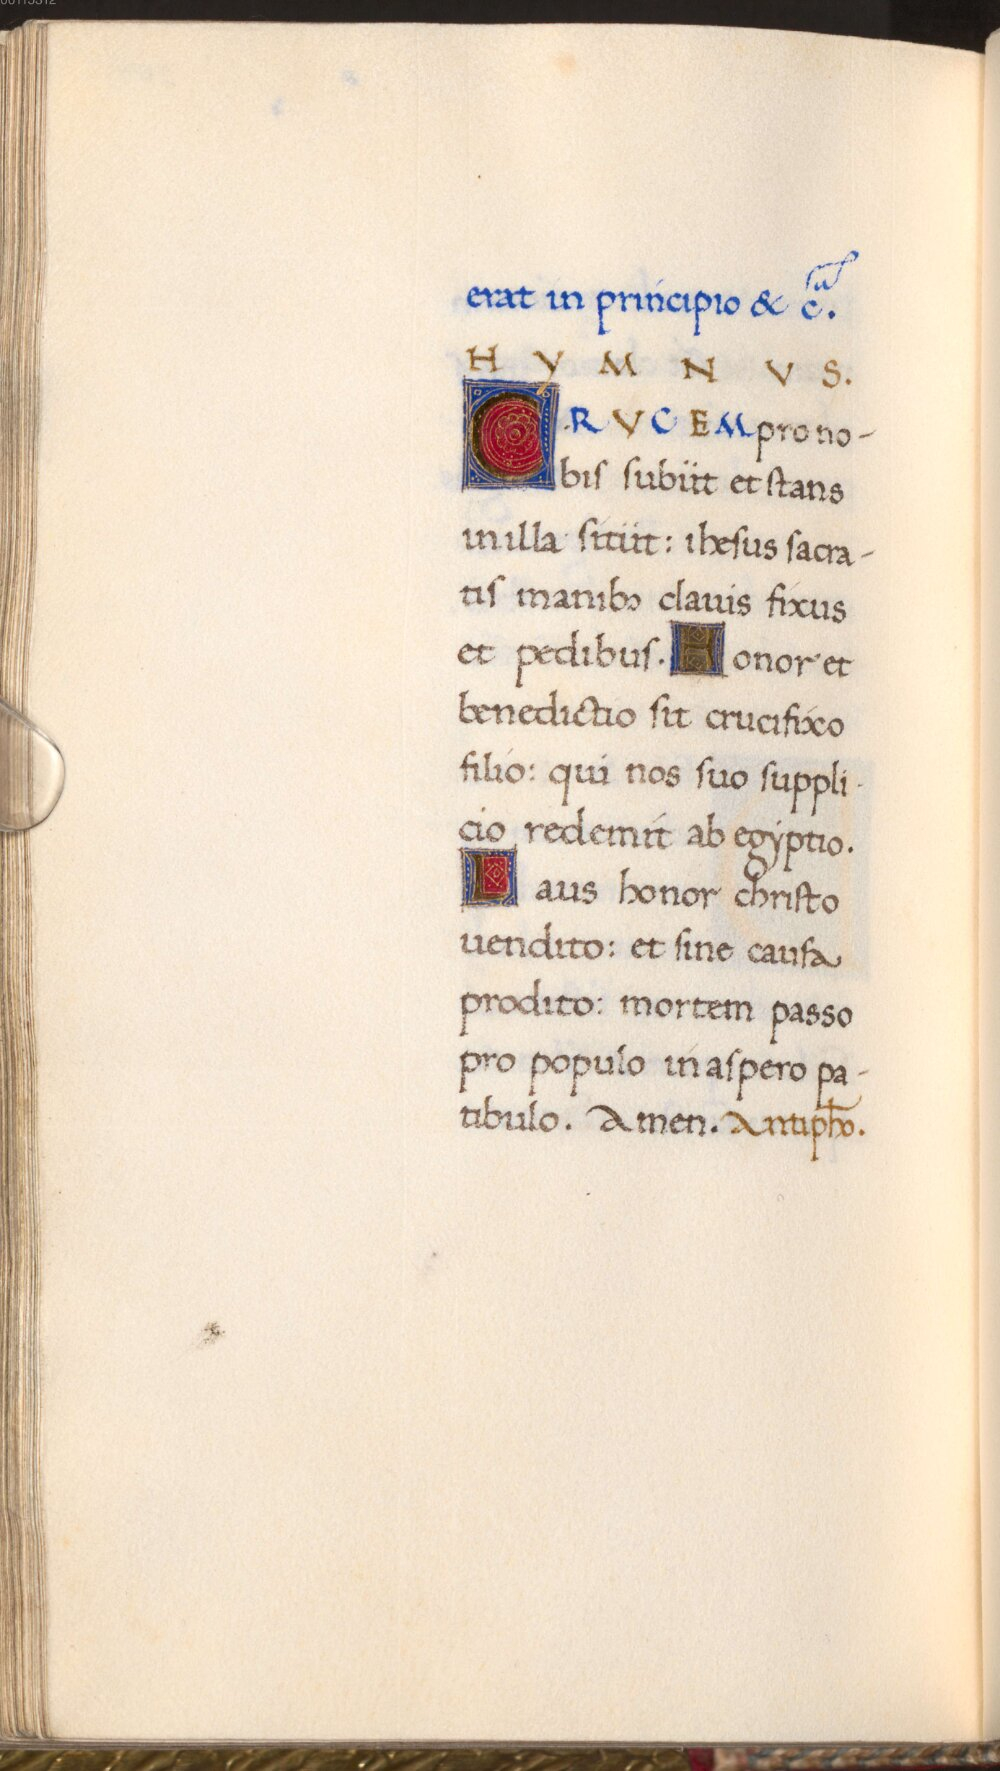 erat in principio & c̃.
HYMNVS.
CRVCEM pro no-
bis subiit et stans
in illa sitiit: ihesus sacra-
tis manibꝰ clauis fixus
et pedibus. Honor et
benedictio sit crucifixo
filio: qui nos suo suppli-
cio redemit ab egyptio.
Laus honor christo
uendito: et sine causa
prodito: mortem passo
pro populo in aspero pa-
tibulo. Amen. Antipho.